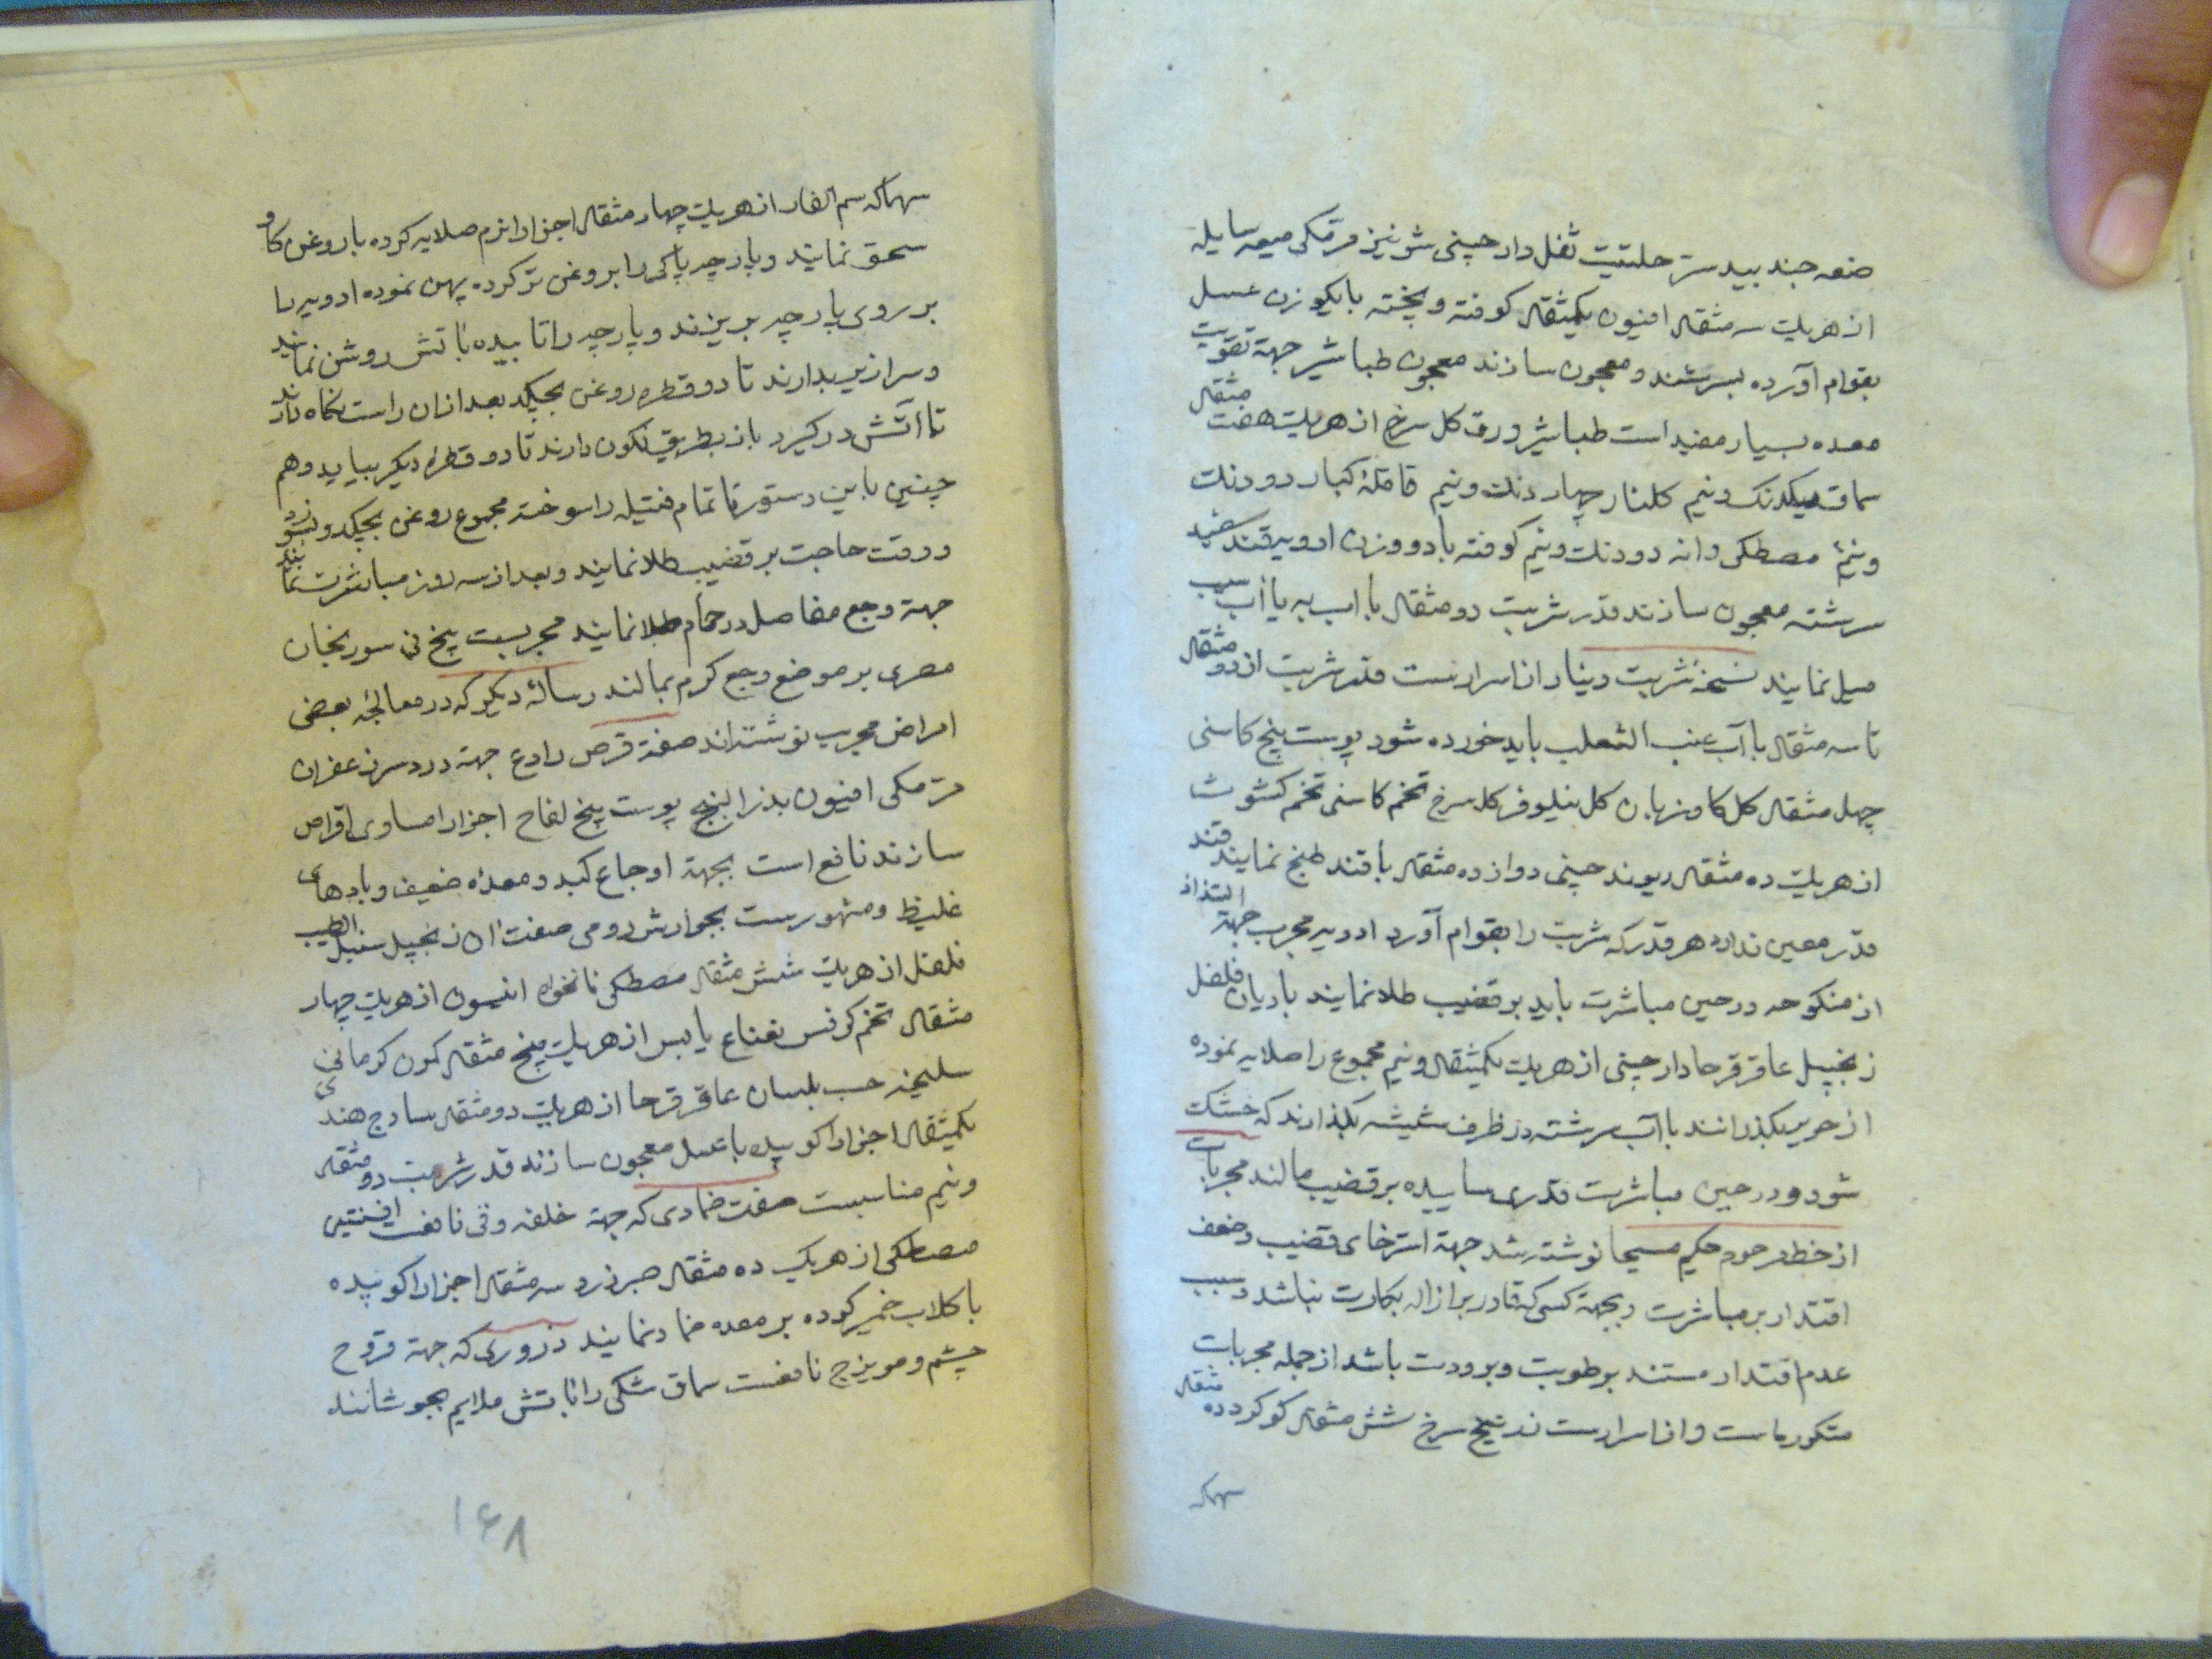 صنعه جند بیدستر حلتیت ثفل دارچینی شونیز مرمکی میعه سایله
از هریک سه مثقال افیون یکمثقال کوفته و بیخته با یکوزن عسل
بقوام آورده بسرشند و معجون سازند معجون طباشیر جهة تقویت
معده بسیار مفید است طباشیر ورق کل سرخ از هریک هفت مثقال
سماق یکدنک و نیم کلنار چهار دنک و نیم قاقلۀ کبار دو دنک
و نیم مصطکی دانه دو دنک و نیم کوفته با دو وزن ادویه قند سفید
سرشته معجون سازند قدر شربت دو مثقال با آب به یا آب سیب
میل نمایند نسخۀ شربت دینار از اسرارست قدر شربت از دو مثقال
تا سه مثقال با آب عنب الثعلب باید خورده شود پوست بیخ کاسنی
چهل مثقال کل کاوزبان کل نیلوفر کل سرخ تخم کاسنی تخم کشوث
از هریک ده مثقال ریوند چینی دوازده مثقال با قند طبخ نمایند قند
قدر معین ندارد هر قدر که شربت را بقوام آورد ادویه مجرب جهة التذاذ
از منکوحه در حین مباشرت باید بر قضیب طلا نمایند بادیان فلفل
زنجبیل عاقرقرحا دارچینی از هریک یکمثقال و نیم مجموع را صلایه نموده
از حریر بکذرانند با آب سرشته در ظرف شیشه بکذارند که خشک
شود و در حین مباشرت قدری ساییده بر قضیب مالند مجربات
از خط مرحوم حکیم مسیحا نوشته شد جهة استرخای قضیب و ضعف
اقتدار بر مباشرت و بجهة کسی که قادر بر ازاله بکارت نباشد و سبب
عدم اقتدار مستند برطوبت و برودت باشد از جمله مجربات
متکوره است و از اسرارست زرنیخ سرخ شش مثقال کوکرد ده مثقال
سهاکه
سهاکه سم الفار از هریک چهار مثقال اجزا را نرم صلایه کرده با روغن کاو
سحق نمایند و پارچه پاکی را بروغن تر کرده پهن نموده ادویه را
بر روی پارچه بریزند و پارچه را تابیده باتش روشن نمایند
و سرازیر بدارند تا دو قطره روغن بچکد بعد از ان راست نکاه دارند
تا آتش در کیرد باز بطریق نکون دارند تا دو قطرۀ دیکر بیاید و هم
چنین باین دستور تا تمام فتیله را سوخته مجموع روغن بچکد و بسوزد
و وقت حاجت بر قضیب طلا نمایند و بعد از سه روز مباشرت نمایند
جهة وجع مفاصل در حمام طلا نمایند مجربست بیخ نی سورنجان
مصری بر موضع وجع کرم بمالند رسالۀ دیکر که در معالجۀ بعضی
امراض مجرب نوشته‌اند صفة قرص رادع جهة درد سر زعفران
مرمکی افیون بذر البنج پوست بیخ لفاح اجزا را مساوی اقراص
سازند نافع است بجهة اوجاع کبد و معدۀ ضعیف و بادهای
غلیظ و مشهورست بجوارش رومی صفت ان زنجبیل سنبل الطیب
فلفل از هریک شش مثقال مصطکی نانخواه انیسون از هریک چهار
مثقال تخم کرفس نعناع یابس از هریک پنج مثقال کمون کرمانی
سلیخه حب بلسان عاقرقرحا از هریک دو مثقال ساذج هندی
یکمثقال اجزا را کوبیده با عسل معجون سازند قدر شربت دو مثقال
و نیم مناسبست صفت ضمادی که جهة خلفه و قی نافعست افسنتین
مصطکی از هریک ده مثقال صبر زرد سه مثقال اجزا را کوبیده
با کلاب خمیر کرده بر معده ضماد نمایند ذروری که جهة قروح
چشم و مویزج نافعست سماق شکی را باتش ملایم بجوشانند
۱۶۸